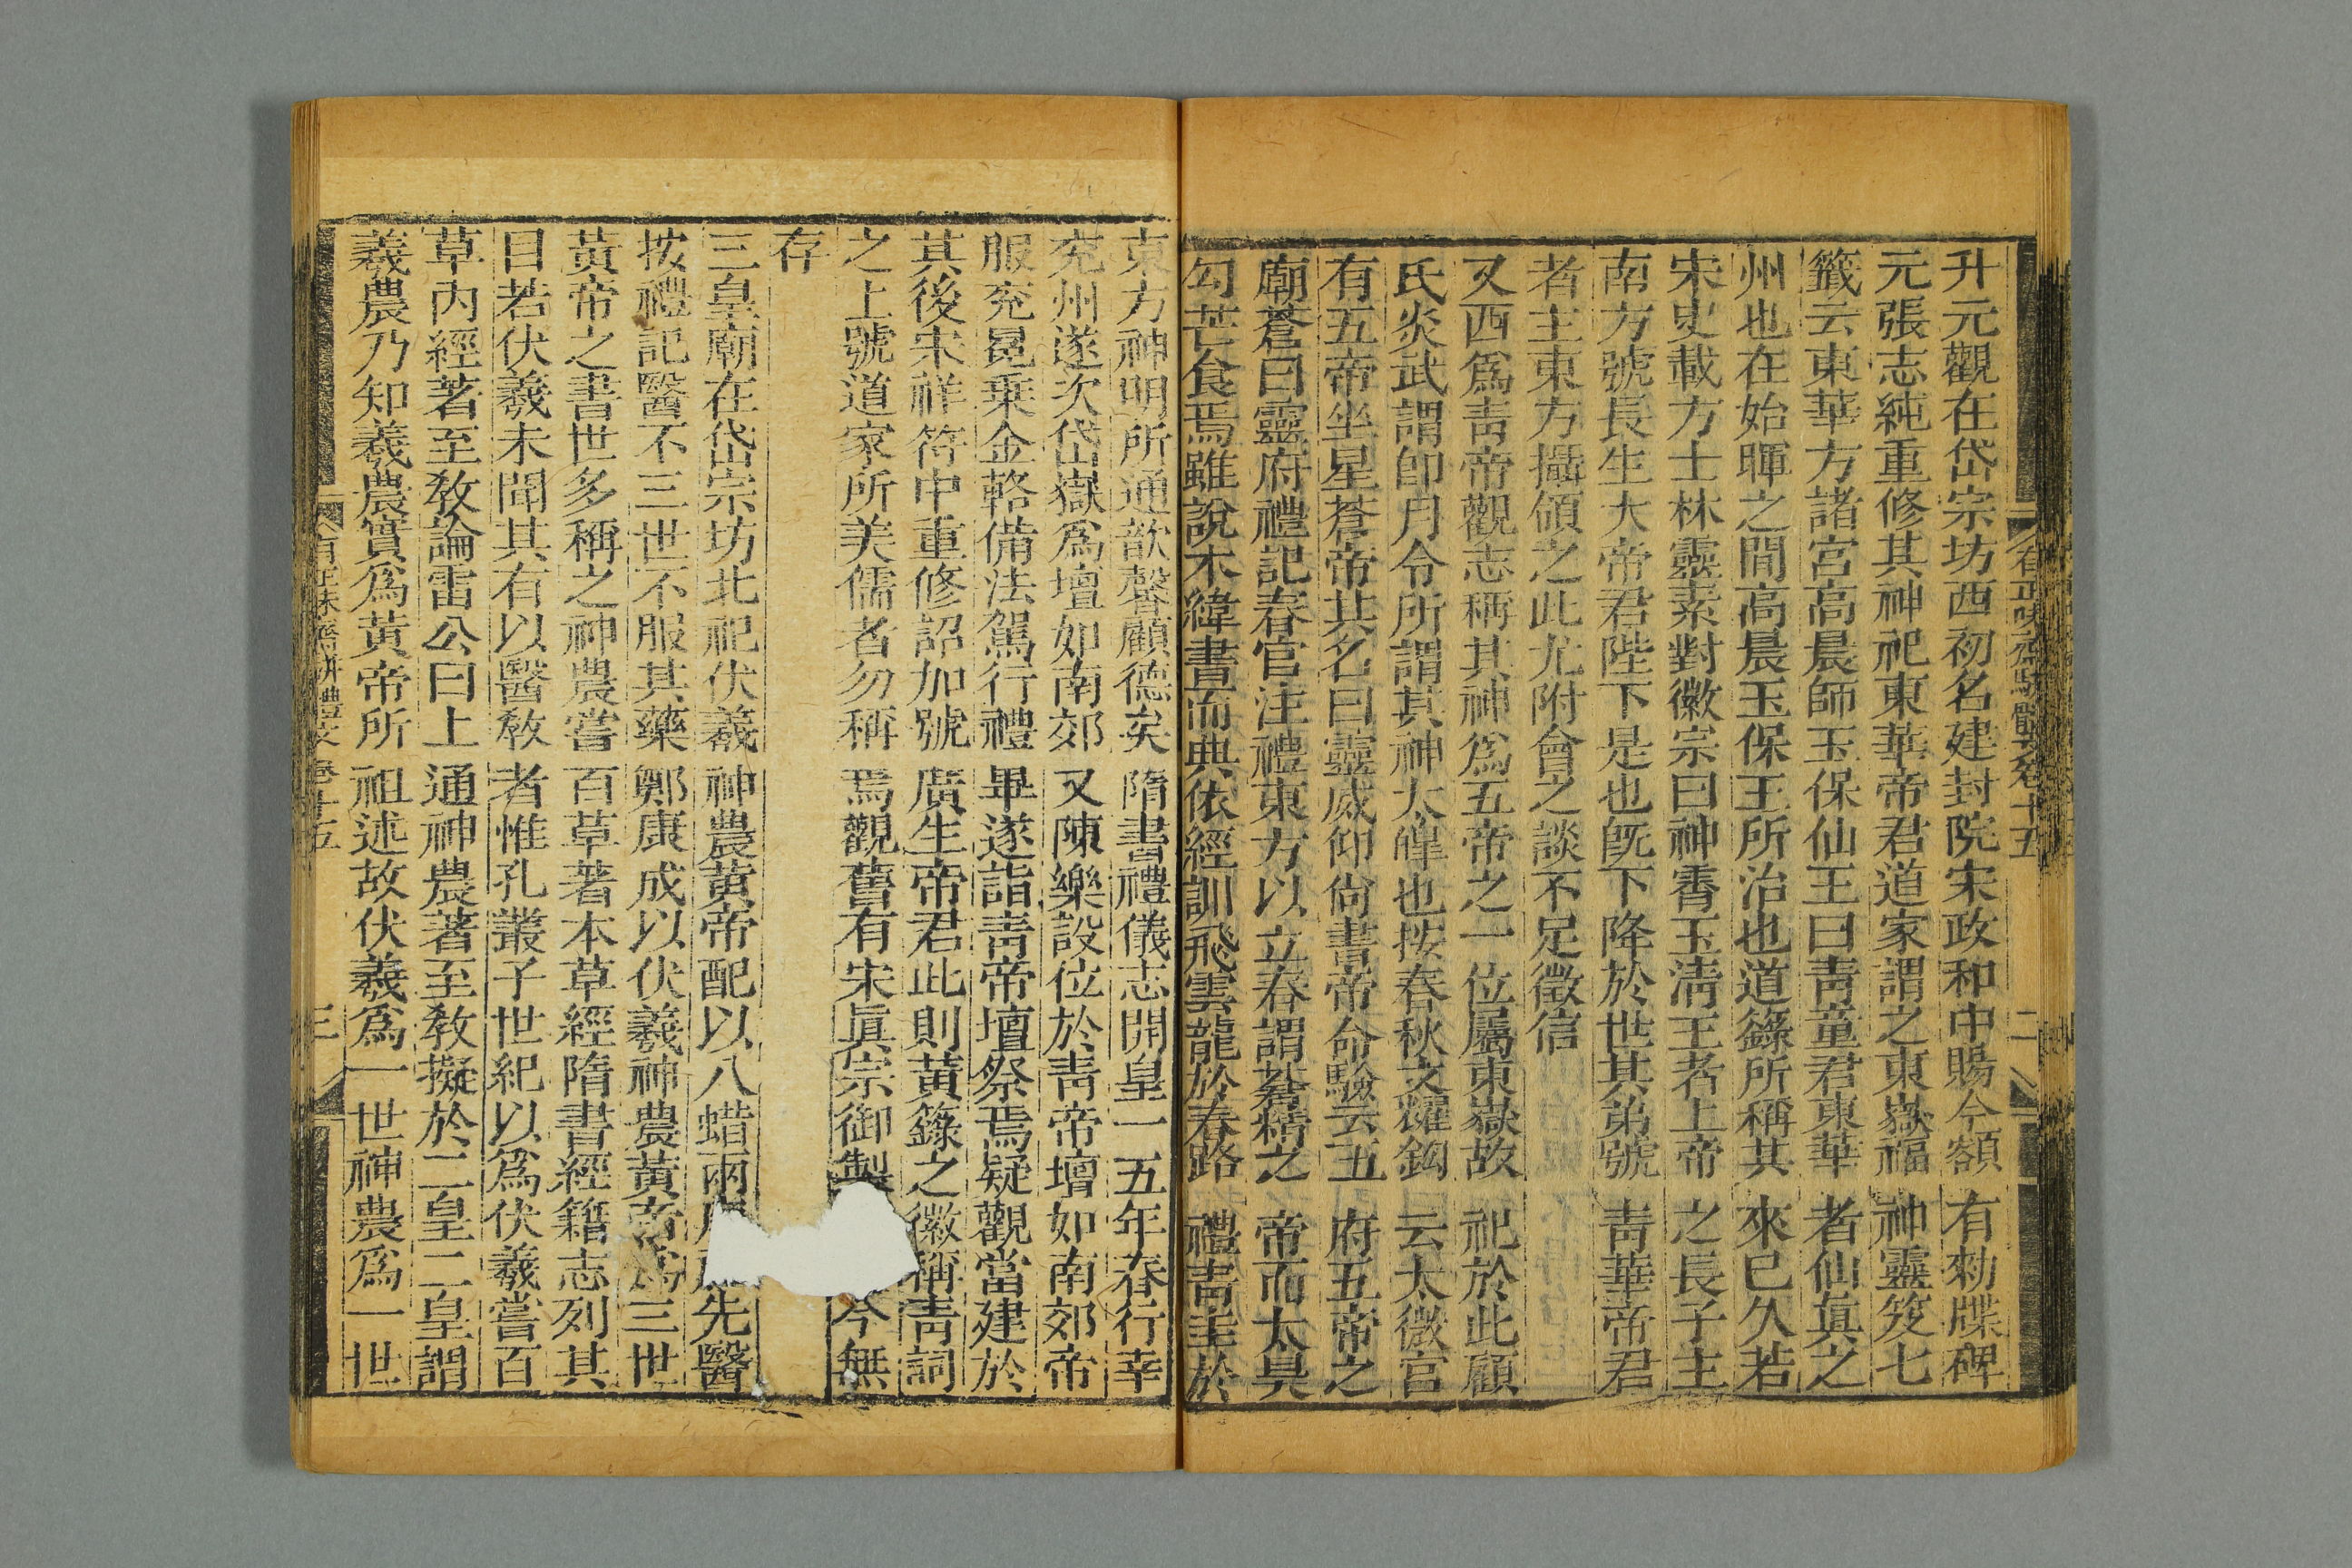 有正味齋駢體文卷十五
二
升元觀在岱宗坊西初名建封院宋政和中賜今額有勅牒碑
元張志純重修其神祀東華帝君道家謂之東嶽福神靈笈七
籤云東華方諸宮高晨師玉保仙王曰靑童君東華者仙眞之
州也在始暉之間高晨玉保王所治也道籙所稱其來已久若
宋史載方士林靈素對徽宗曰神霄玉淸王者上帝之長子主
南方號長生大帝君陛下是也旣下降於世其弟號靑華帝君
者主東方攝領之此尤附會之談不足徵信
又西爲靑帝觀志稱其神爲五帝之一位屬東嶽故祀於此顧
氏炎武謂卽月令所謂其神太皥也按春秋文耀鈎云太微宮
有五帝坐星蒼帝其名曰靈威仰尙書帝命驗云五府五帝之
廟蒼曰靈府禮記春官注禮東方以立春謂蒼精之帝而太昊
勾芒食焉雖說本緯書而典依經訓飛雲龍於春路禮靑圭於
東方神明所通歆馨顧德矣隋書禮儀志開皇一五年春行幸
兗州遂次岱嶽爲壇如南郊又陳樂設位於靑帝壇如南郊帝
服兗冕乗金輅備法駕行禮畢遂詣靑帝壇祭焉疑觀當建於
其後宋祥符中重修詔加號廣生帝君此則黃籙之徽稱靑詞
之上號道家所美儒者勿稱焉觀舊有宋眞宗御製今無
存
三皇廟在岱宗坊北祀伏羲神農黃帝配以八蜡兩先醫
按禮記醫不三世不服其藥鄭康成以伏羲神農黃帝爲三世
黃帝之書世多稱之神農嘗百草著本草經隋書經籍志列其
目若伏羲未聞其有以醫敎者惟孔叢子世紀以爲伏羲嘗百
草內經著至敎論雷公曰上通神農著至敎擬於二皇二皇謂
羲農乃知羲農實爲黃帝所祖述故伏羲爲一世神農爲一世
有正味齋駢體文卷十五
三